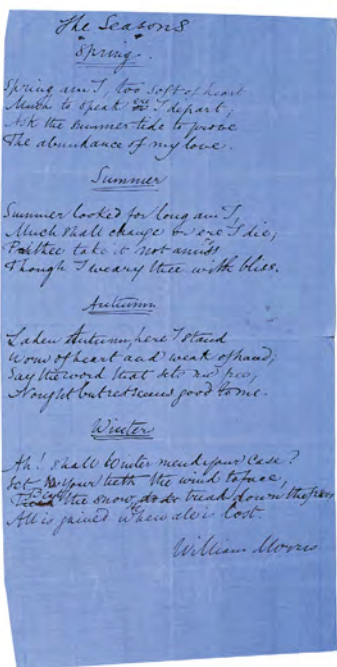 The Seasons
Spring.
Spring am I, too soft of heart
Much to speak ere I depart;
Ask the summer tide to prove
The abundance of my love.
Summer
Summer looked for long am I,
Much shall change or ere I die;
Prithee take it not amiss
Though I weary thee with bliss.
Autumn
Laden Autumn, here I stand
Worn of heart and weak of hand;
Say the word that sets me free,
Nought but rest seems good to me.
Winter
Ah! shall Winter mend your case?
Set your teeth the wind to face,
the snow, tread down the
All is gained when all is lost.
William Morris